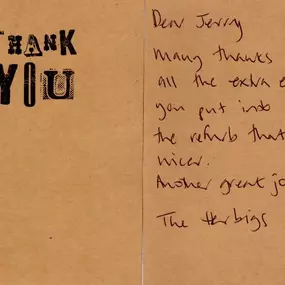 THANK
YOU
Dear Jerry
Many thanks
all the extra e
you put into
the refurb that
nicer.
Another great jo
The Herbigs